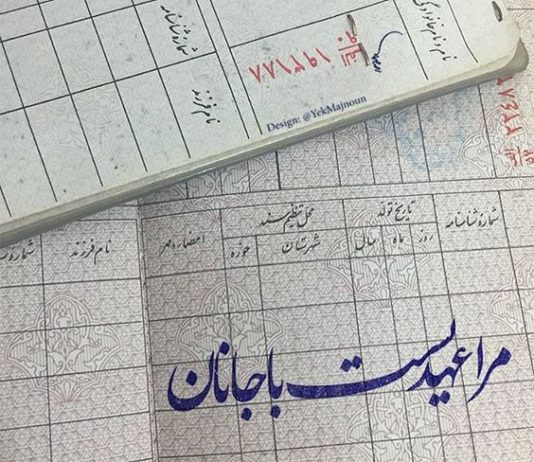 نام و نام خانوادگی
شماره شناسنامه
نام فرزند
Design: @YekMajnoun
شماره شناسنامه
تاریخ تولد
روز ماه سال
محل تنظیم سند
شهرستان حوزه
امضاء و مهر
نام فرزند
مرا عهدیست با جانان